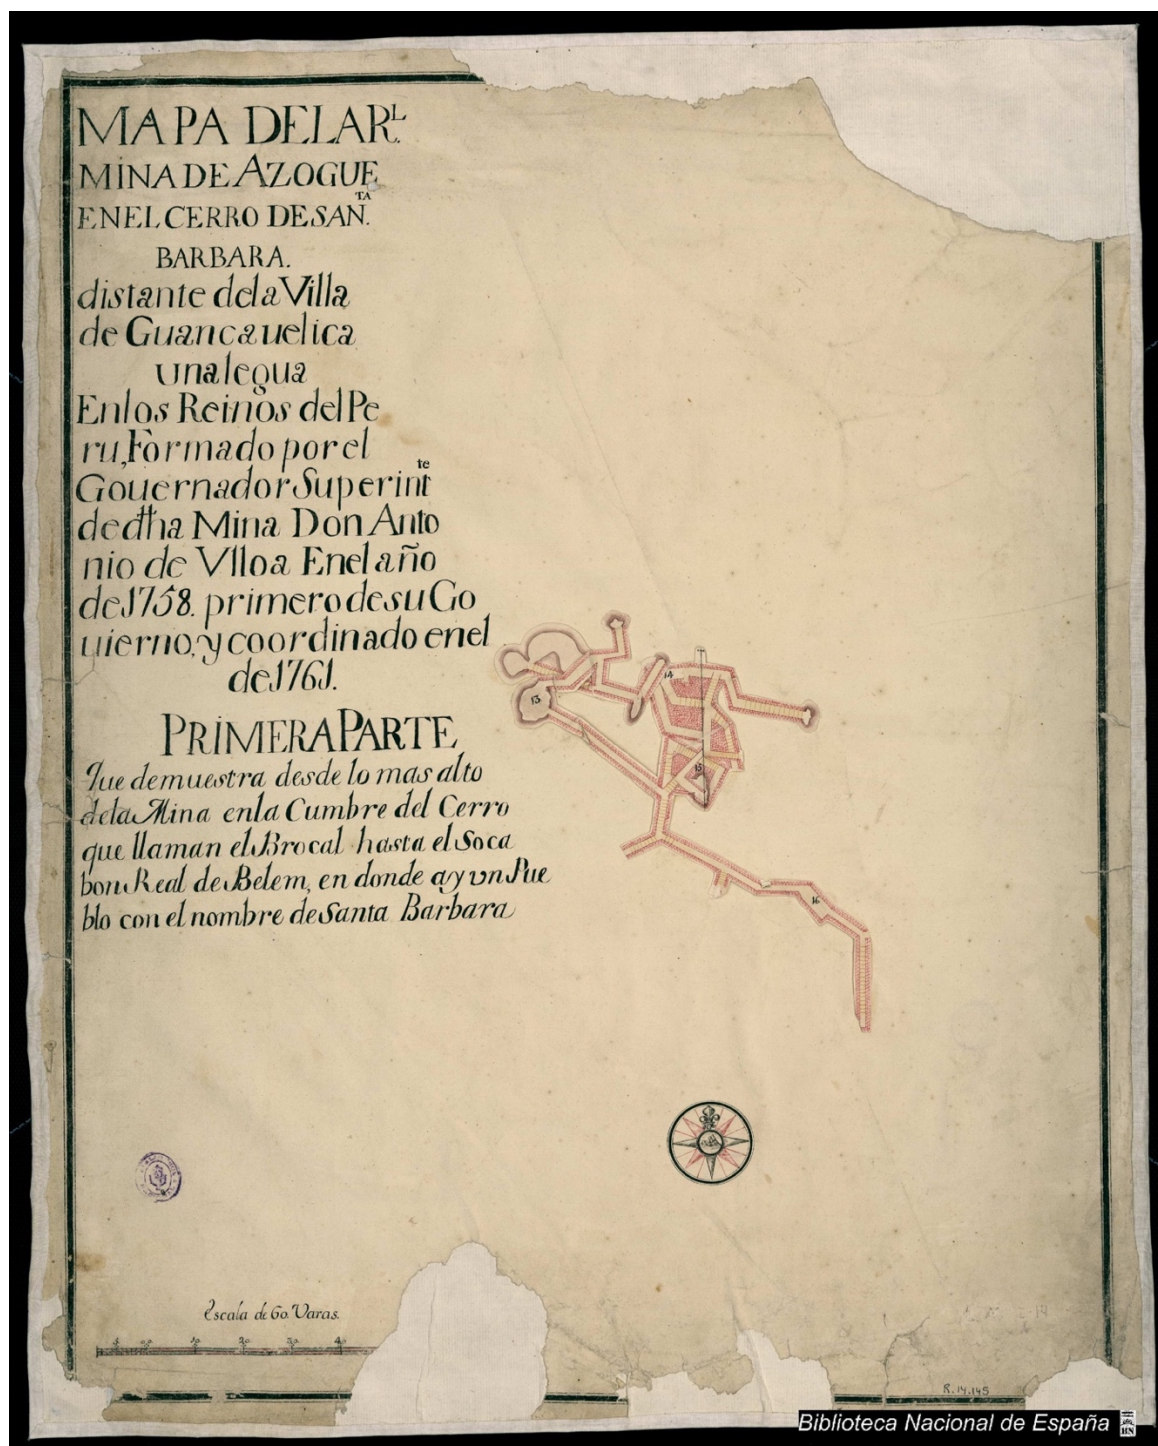 MAPA DE LA R.L
MINA DE AZOGUE
EN EL CERRO DE SAN.TA
BARBARA.
distante de la Villa
de Guancauelica
una legua
En los Reinos del Pe
ru, Formado por el
Gouernador Superint.te
de dha Mina Don Anto
nio de Vlloa En el año
de 1758. primero de su Go
uierno, y coordinado en el
de 1761.
PRIMERA PARTE
Que demuestra desde lo mas alto
de la Mina en la Cumbre del Cerro
que llaman el Brocal hasta el Soca
bon Real de Belem, en donde ay vn Pue
blo con el nombre de Santa Barbara
13
14
15
16
Escala de 60 Varas.
5 10 20 30 40
R.14.145
Biblioteca Nacional de España